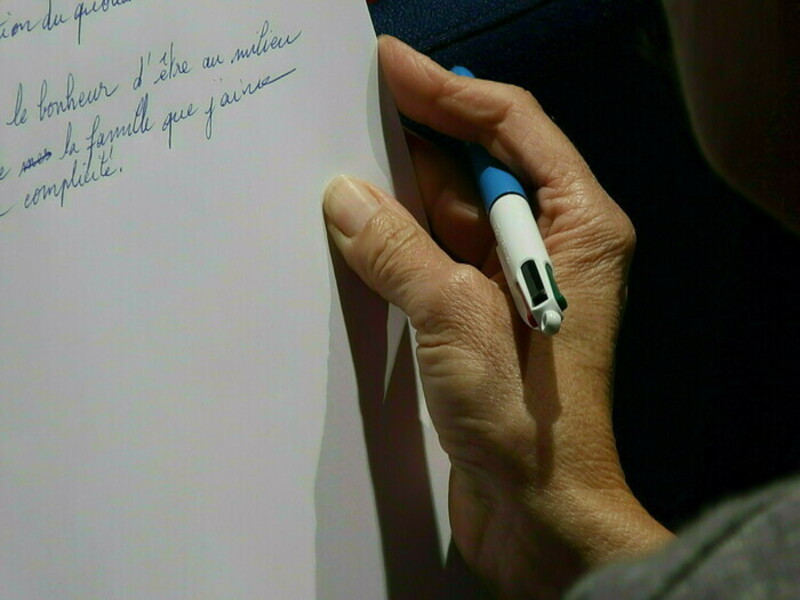 tion du quotid
le bonheur d'être au milieu
la famille que j'aime
complicité.